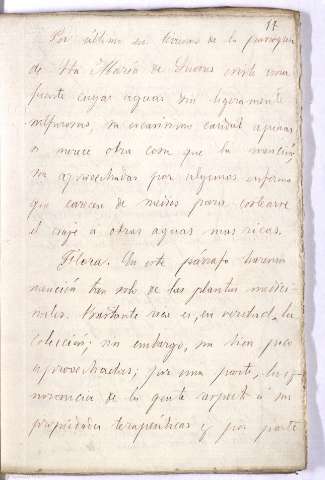 11
Por último en términos de la parroquia
de Sta María de Lueros existe una
fuente cuyas aguas son ligeramente
sulfurosas, su escasísimo caudal apenas
si merece otra cosa que la mención
son aprovechadas por algunos enfermos
que carecen de medios para costearse
el viaje a otras aguas mas ricas.
Flora. En este párrafo haremos
mención tan solo de las plantas medici-
nales. Bastante rica es, en verdad, la
colección; sin embargo, son bien poco
aprovechadas; por una parte, la ig-
norancia de la gente respecto á sus
propiedades terapéuticas y por parte